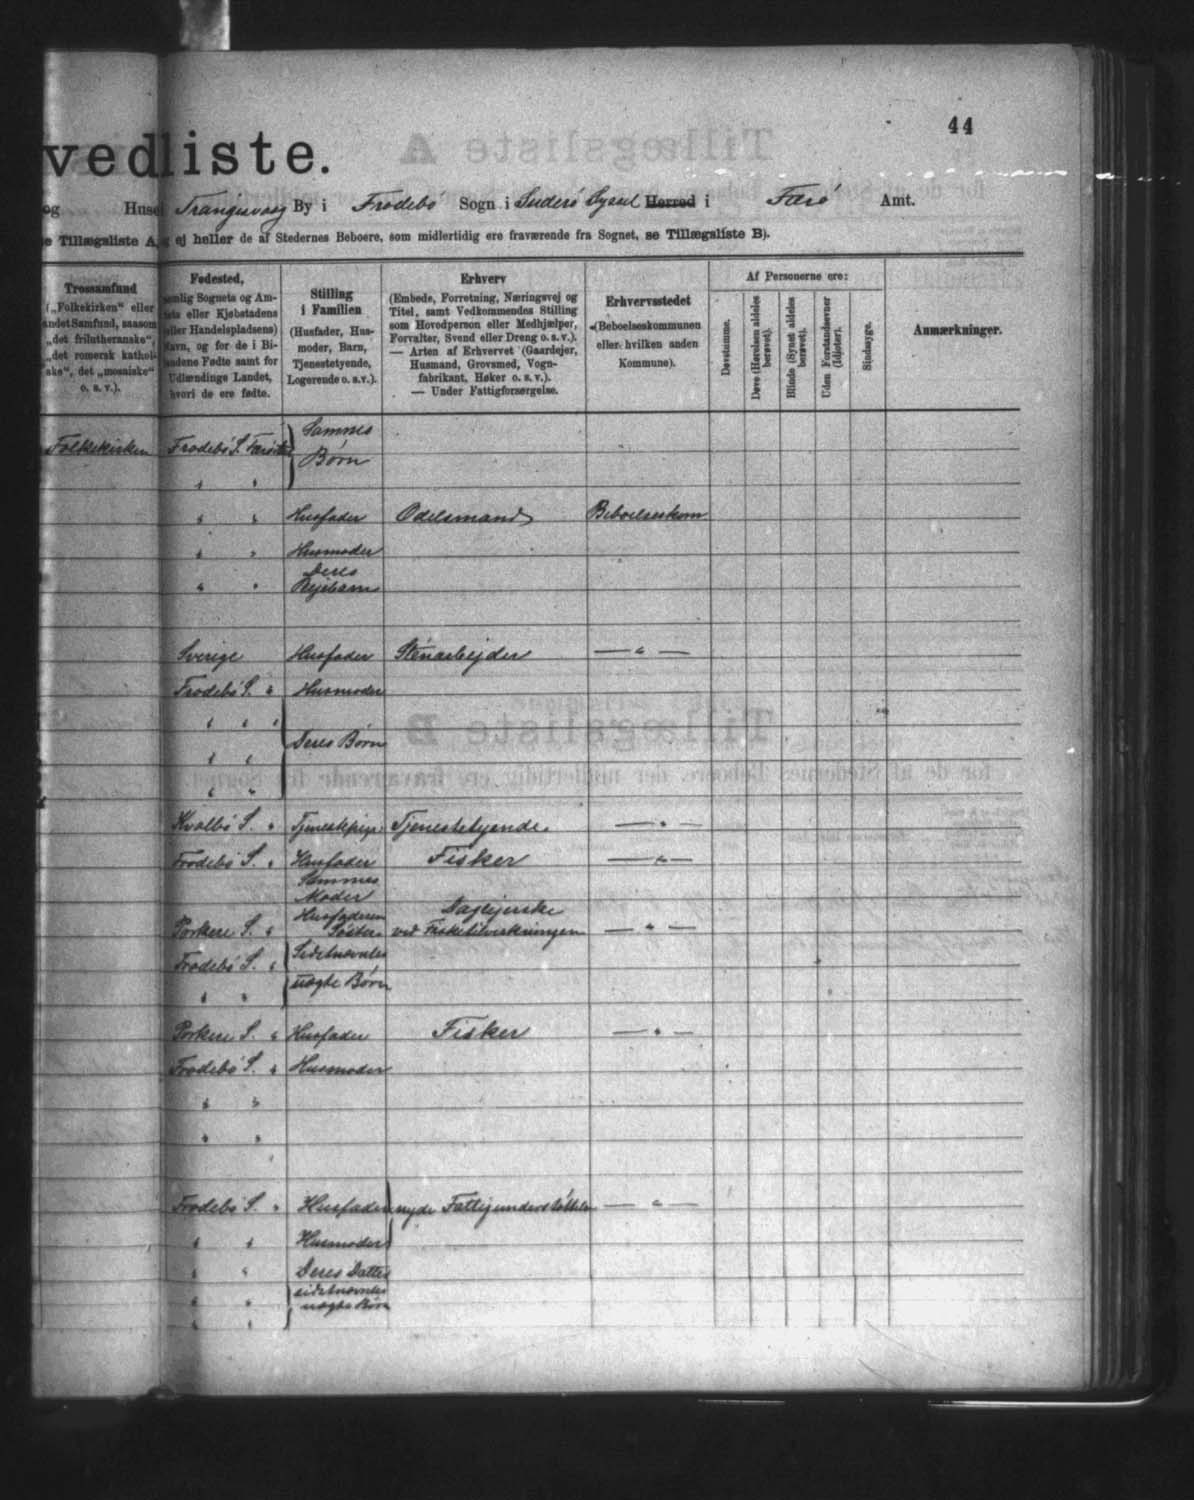 44
vedliste.
og Huse Trangisvaag By i Frodebö Sogn i Suderö Syssel Herred i Færö Amt.
e Tillægsliste A, og ej heller de af Stedernes Beboere, som midlertidig ere fraværende fra Sognet, se Tillægsliste B).
Trossamfund
(„Folkekirken“ eller
andet Samfund, saasom
„det frilutheranske“,
„det romersk kathol-
ske“, det „mosaiske“
o. s. v.).
Fødested,
nemlig Sognets og Am-
tets eller Kjøbstadens
(eller Handelspladsens)
Navn, og for de i Bi-
landene Fødte samt for
Udlændinge Landet,
hvori de ere fødte.
Stilling
i Familien
(Husfader, Hus-
moder, Barn,
Tjenestetyende,
Logerende o. s.v.).
Erhverv
(Embede, Forretning, Næringsvej og
Titel, samt Vedkommendes Stilling
som Hovedperson eller Medhjælper,
Forvalter, Svend eller Dreng o. s. v.).
— Arten af Erhvervet (Gaardejer,
Husmand, Grovsmed, Vogn-
fabrikant, Høker o. s. v.).
— Under Fattigforsørgelse.
Erhvervsstedet
(Beboelseskommunen
eller hvilken anden
Kommune).
Af Personerne ere:
Døvstumme.
Døve (Hørelsen aldeles berøvet).
Blinde (Synet aldeles berøvet).
Uden Forstandsevner (Idioter).
Sindssyge.
Anmærkninger.
Folkekirken Frodebö S. Færöerne Sammes
Börn
" "
" " Husfader Odelsmand Beboelseskom
" " Husmoder
Deres
" " Plejebarn
Sverige Husfader Stenarbejder — " —
Frodebö S. " Husmoder
" " "
Deres Börn
" "
" "
Kvalbö S. " Tjenestepige Tjenestetyende. — " —
Frodebö S. " Husfader Fisker — " —
Sammes
Moder
Husfaderens Daglejerske
Porkere S. " Söster ved Fisketilvirkningen — " —
Frodebö S. " Sidstnævntes
" " uægte Börn
Porkere S. " Husfader Fisker — " —
Frodebö S. " Husmoder
" "
" "
Frodebö S. " Husfader nyde Fattigunderstöttelse — " —
" " Husmoder
" " Deres Datter
sidstnævntes
" " uægte Börn
" "